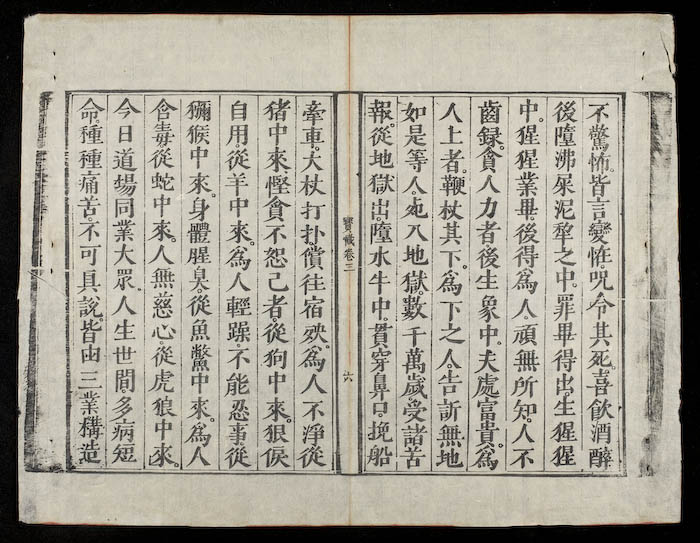 不驚怖。皆言變恠。呪令其死。喜飲酒醉
後墮沸屎泥犂之中。罪畢得出。生猩猩
中。猩猩業畢。後得為人。頑無所知。人不
齒錄。貪人力者後生象中。夫處富貴。為
人上者。鞭杖其下。為下之人。告訴無地
如是等人。死入地獄數千萬歲。受諸苦
報。從地獄出。墮水牛中。貫穿鼻口。挽船
寶懺卷三
六
牽車。大杖打扑。償往宿殃。為人不淨從
猪中來。慳貪不恕己者。從狗中來。狠戾
自用。從羊中來。為人輕躁。不能忍事。從
獼猴中來。身體腥臭。從魚鱉中來。為人
含毒從蛇中來。人無慈心。從虎狼中來。
今日道場同業大眾人生世間多病短
命。種種痛苦。不可具說。皆由三業構造